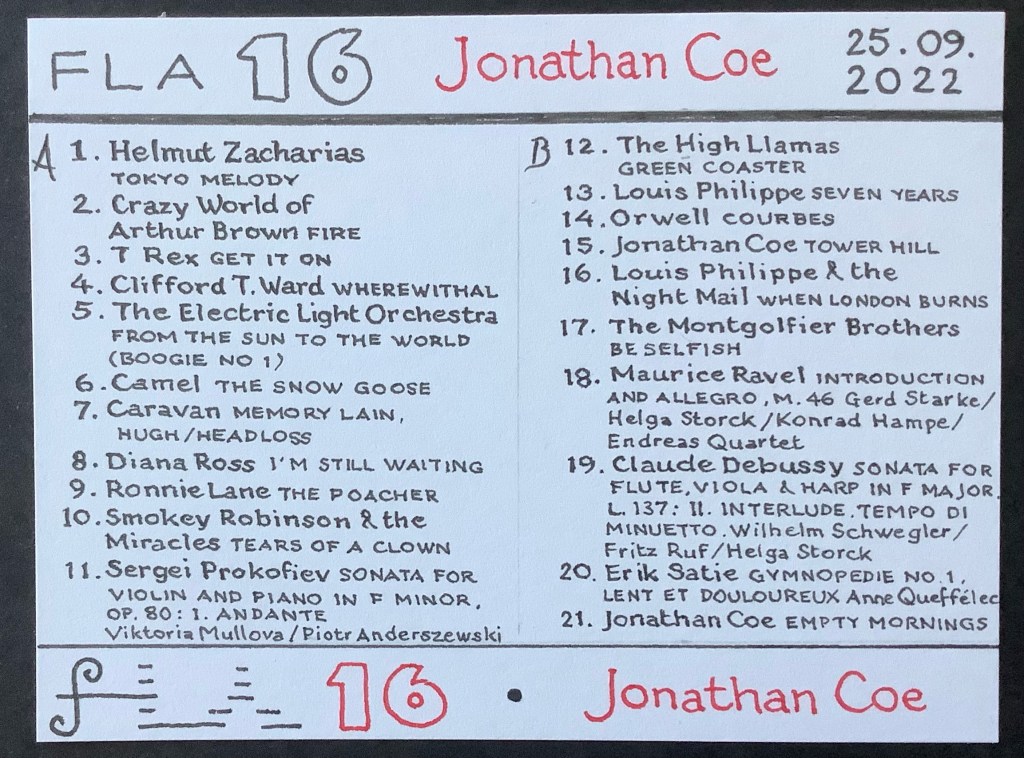 FLA 16 Jonathan Coe 25.09.
2022
A 1. Helmut Zacharias
TOKYO MELODY
2. Crazy World of
Arthur Brown FIRE
3. T Rex GET IT ON
4. Clifford T. Ward WHEREWITHAL
5. The Electric Light Orchestra
FROM THE SUN TO THE WORLD
(BOOGIE NO 1)
6. Camel THE SNOW GOOSE
7. Caravan MEMORY LAIN,
HUGH/HEADLOSS
8. Diana Ross I'M STILL WAITING
9. Ronnie Lane THE POACHER
10. Smokey Robinson & the
Miracles TEARS OF A CLOWN
11. Sergei Prokofiev SONATA FOR
VIOLIN AND PIANO IN F MINOR,
OP. 80: I. ANDANTE
Viktoria Mullova/Piotr Anderszewski
B 12. The High Llamas
GREEN COASTER
13. Louis Philippe SEVEN YEARS
14. Orwell COURBES
15. Jonathan Coe TOWER HILL
16. Louis Philippe & the
Night Mail WHEN LONDON BURNS
17. The Montgolfier Brothers
BE SELFISH
18. Maurice Ravel INTRODUCTION
AND ALLEGRO, M. 46 Gerd Starke/
Helga Storck/Konrad Hampe/
Endreas Quartet
19. Claude Debussy SONATA FOR
FLUTE, VIOLA & HARP IN F MAJOR,
L. 137: II. INTERLUDE. TEMPO DI
MINUETTO. Wilhelm Schwegler/
Fritz Ruf/Helga Storck
20. Erik Satie GYMNOPEDIE NO. 1,
LENT ET DOULOUREUX Anne Queffélec
21. Jonathan Coe EMPTY MORNINGS
FLA 16 • Jonathan Coe